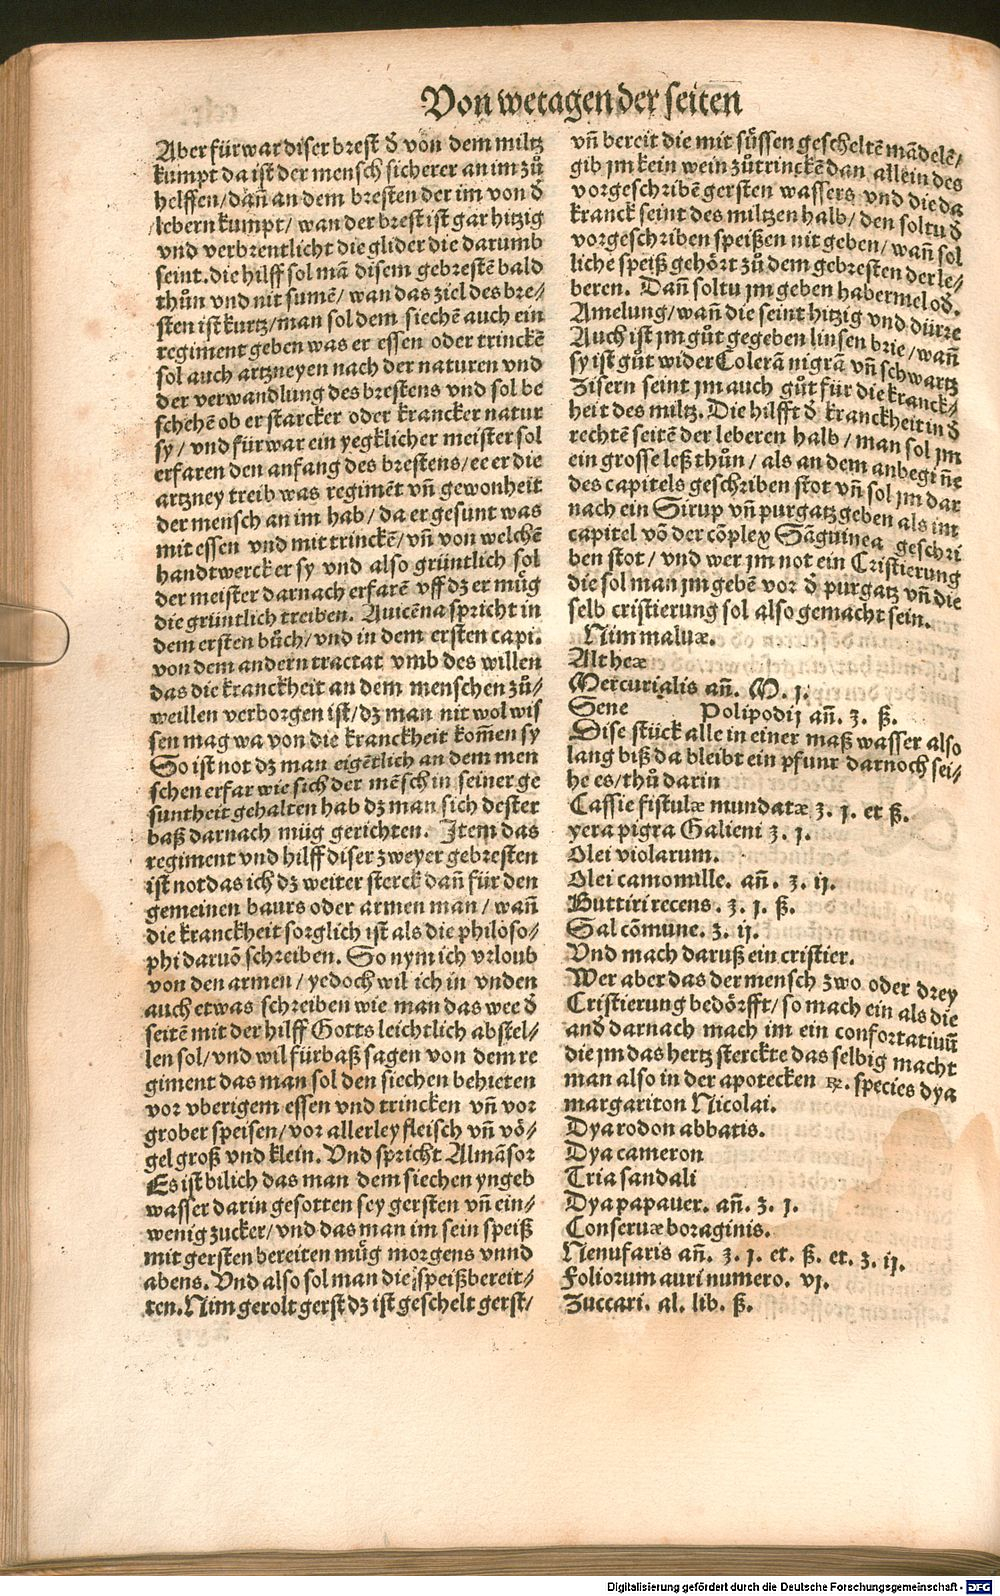 Von wetagen der seiten
Aber fürwar diser brest d̄ von dem miltz
kumpt da ist der mensch sicherer an im zů
helffen / dañ an dem bresten der im von d̄
lebern kumpt / wan der brest ist gar hitzig
vnd verbrentlicht die glider die darumb
seint. die hilff sol mā disem gebrestē bald
thůn vnd nit sumē / wan das ziel des bre-/
sten ist kurtz / man sol dem siechē auch ein
regiment geben was er essen oder trinckē
sol auch artzneyen nach der naturen vnd
der verwandlung des brestens vnd sol be
schehē ob er starcker oder krancker natur
sy / vnd fürwar ein yegklicher meister sol
erfaren den anfang des brestens / ee er die
artzney treib was regimēt vñ gewonheit
der mensch an im hab / da er gesunt was
mit essen vnd mit trinckē / vñ von welchē
handtwercker sy vnd also grüntlich sol
der meister darnach erfarē vff dz er müg
die grüntlich treiben. Auicēna spricht in
dem ersten bůch / vnd in dem ersten capi.
von dem andern tractat vmb des willen
das die kranckheit an dem menschen zů-/
weillen verborgen ist / dz man nit wol wis
sen mag wa von die kranckheit kom̄en sy
So ist not dz man eigētlich an dem men
schen erfar wie sich der mēsch in seiner ge
suntheit gehalten hab dz man sich dester
baß darnach müg gerichten. Item das
regiment vnd hilff diser zweyer gebresten
ist not das ich dz weiter sterck dañ für den
gemeinen baurs oder armen man / wañ
die kranckheit sorglich ist als die philoso-/
phi daruō schreiben. So nym ich vrloub
von den armen / yedoch wil ich in vnden
auch etwas schreiben wie man das wee d̄
seitē mit der hilff Gotts leichtlich abstel-/
len sol / vnd wil fürbaß sagen von dem re
giment das man sol den siechen behieten
vor vberigem essen vnd trincken vñ vor
grober speisen / vor allerley fleisch vñ vö-/
gel groß vnd klein. Vnd spricht Almāsor
Es ist bilich das man dem siechen yngeb
wasser darin gesotten sey gersten vñ ein-/
wenig zucker / vnd das man im sein speiß
mit gersten bereiten müg morgens vnnd
abens. Vnd also sol man die speiß bereit-/
ten. Nim gerolt gerst dz ist geschelt gerst /
vñ bereit die mit süssen gescheltē mādelē /
gib jm kein wein zůtrinckē dan allein des
vorgeschribē gersten wassers vnd die da
kranck seint des miltzen halb / den soltu d̄
vorgeschriben speißen nit geben / wañ sol
liche speiß gehört zů dem gebresten der le-/
beren. Dañ soltu jm geben habermel od̄.
Amelung / wañ die seint hitzig vnd dürre
Auch ist jm gůt gegeben linsen brie / wañ
sy ist gůt wider Colerā nigrā vñ schwartz
Zisern seint jm auch gůt für die kranck-/
heit des miltz. Die hilfft d̄ kranckheit in d̄
rechtē seitē der leberen halb / man sol jm
ein grosse leß thůn / als an dem anbegiñe
des capitels geschriben stot vñ sol jm dar
nach ein Sirup vñ purgatz geben als im
capitel vō der cōplex Sāguinea geschri
ben stot / vnd wer jm not ein Cristierung
die sol man jm gebē vor d̄ purgatz vñ die
selb cristierung sol also gemacht sein.
Nim maluæ.
Altheæ
Mercurialis añ. M. j.
Sene Polipodij añ. ʒ. ß.
Dise stück alle in einer maß wasser also
lang biß da bleibt ein pfunt darnoch sei-/
he es / thů darin
Cassie fistulæ mundatæ ʒ. j. et ß.
yera pigra Galieni ʒ. j.
Olei violarum.
Olei camomille. añ. ʒ. ij.
Buttiri recens. ʒ. j. ß.
Sal cōmune. ʒ. ij.
Vnd mach daruß ein cristier.
Wer aber das der mensch zwo oder drey
Cristierung bedörfft / so mach ein als die
and̄ darnach mach im ein confortatiuū
die jm das hertz sterckte das selbig macht
man also in der apotecken ℞. species dya
margariton Nicolai.
Dyarodon abbatis.
Dyacameron
Tria sandali
Dyapapauer. añ. ʒ. j.
Conseruæ boraginis.
Nenufaris añ. ʒ. j. et. ß. et. ʒ. ij.
Foliorum auri numero. vj.
Zuccari. al. lib. ß.
Digitalisierung gefördert durch die Deutsche Forschungsgemeinschaft - DFG